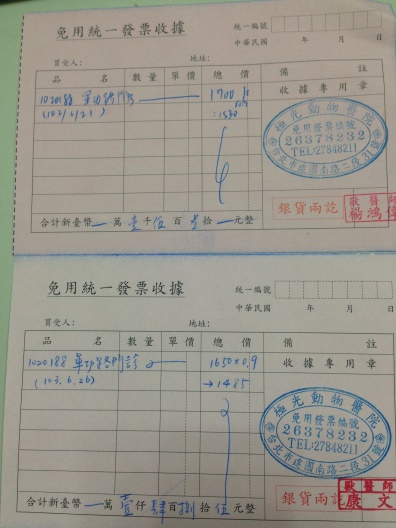 免用統一發票收據
統一編號
中華民國 年 月 日
買受人： 地址：
品名 數量 單價 總價 備註
1020188 1700
(103/6/21) 1530
收據專用章
極光動物醫院
免用發票編號
26378232
TEL:27848211
銀貨兩訖
獸醫師
楊鴻
合計新臺幣 萬壹千伍百參拾 元整
免用統一發票收據
統一編號
中華民國 年 月 日
買受人： 地址：
品名 數量 單價 總價 備註
1020188 1650x0.9
(103.6.26) →1485
收據專用章
極光動物醫院
免用發票編號
26378232
TEL:27848211
銀貨兩訖
獸醫師
康文
合計新臺幣 萬壹仟肆百捌拾伍元整